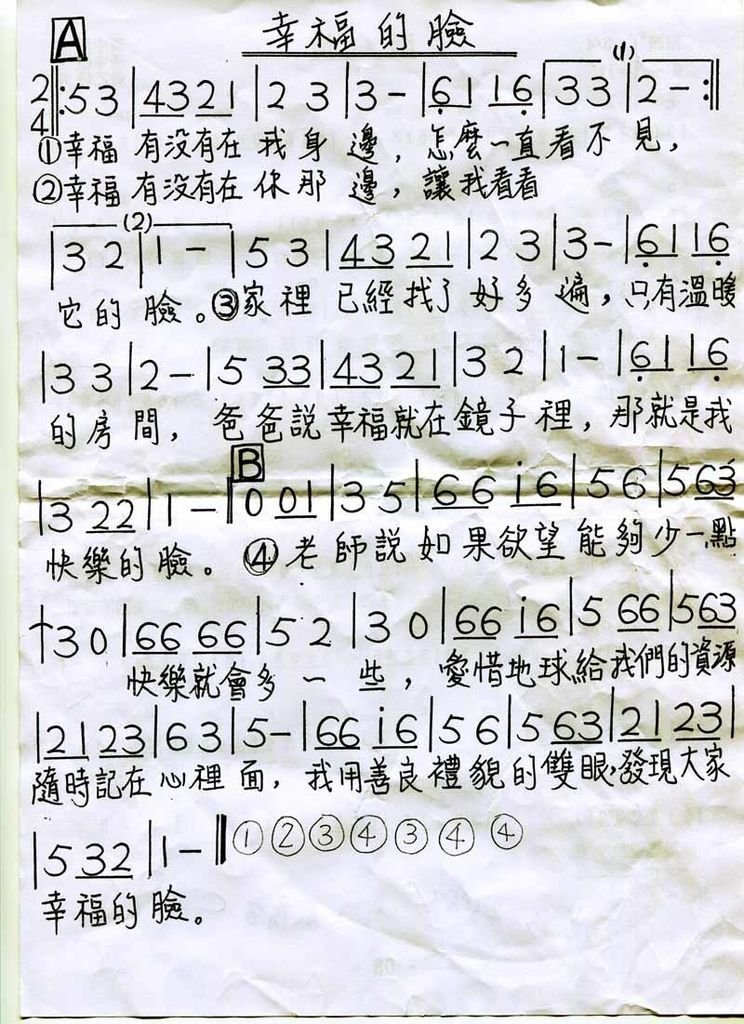 A 幸福的臉
(1)
2/4 ‖:53|4321|2 3|3-|61 16|33|2-:‖
①幸福 有没有在 我身 邊，怎麼一直看不見，
②幸福 有没有在 你那 邊，讓我看看
(2)
|3 2|1 -|5 3|43 21|2 3|3-|61 16
它的 臉。③家裡 已經找了 好多 遍，只有溫暖
|3 3|2-|5 33|43 21|3 2|1-|61 16
的房 間，爸爸説幸福就在鏡子裡，那就是我
B
|3 22|1-‖0 01|3 5|66 i6|56|563
快樂的臉。④老師説如果欲望能夠少一點
|30|66 66|5 2|3 0|66 i6|5 66|563
快樂就會多一些，愛惜地球給我們的資源
|21 23|63|5-|66 i6|56|5 63|21 23|
隨時記在心裡面，我用善良禮貌的雙眼，發現大家
|5 32|1-‖①②③④③④④
幸福的臉。